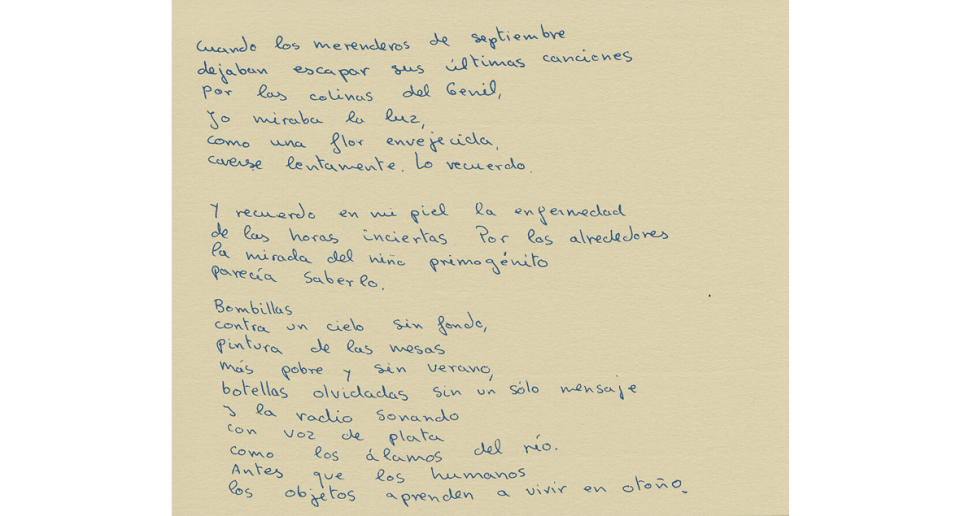 cuando los merenderos de septiembre
dejaban escapar sus últimas canciones
por las colinas del Genil,
yo miraba la luz,
como una flor envejecida,
caerse lentamente. Lo recuerdo.
Y recuerdo en mi piel la enfermedad
de las horas inciertas Por los alrededores
la mirada del niño primogénito
parecía saberlo.
Bombillas
contra un cielo sin fondo,
pintura de las mesas
más pobre y sin verano,
botellas olvidadas sin un sólo mensaje
y la radio sonando
con voz de plata
como los álamos del río.
Antes que los humanos
los objetos aprenden a vivir en otoño.